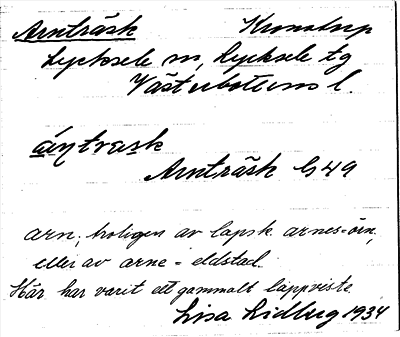 Arnträsk Kronotorp
Lycksele sn, Lycksele tg
Västerbottens l.
Arnträsk G 49
arn, troligen av lapsk. arnes = örn,
eller av arne = eldstad.
Här har varit ett gammalt lappviste
Lisa Lidberg 1934